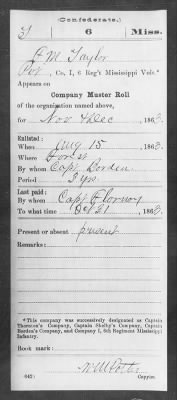 (Confederate.)
T 6 Miss.
E M Taylor
Pvt, Co. I, 6 Reg't Mississippi Vols.*
Appears on
Company Muster Roll
of the organization named above,
for Nov & Dec, 1863.
Enlisted:
When Aug 15, 1863.
Where Forest
By whom Capt Borden
Period 3 yrs
Last paid:
By whom Capt Flornoy
To what time Oct 31, 1863.
Present or absent present
Remarks:
*This company was successively designated as Captain
Thornton's Company, Captain Shelby's Company, Captain
Borden's Company, and Company I, 6th Regiment Mississippi
Infantry.
Book mark:
(642)
Copyist.